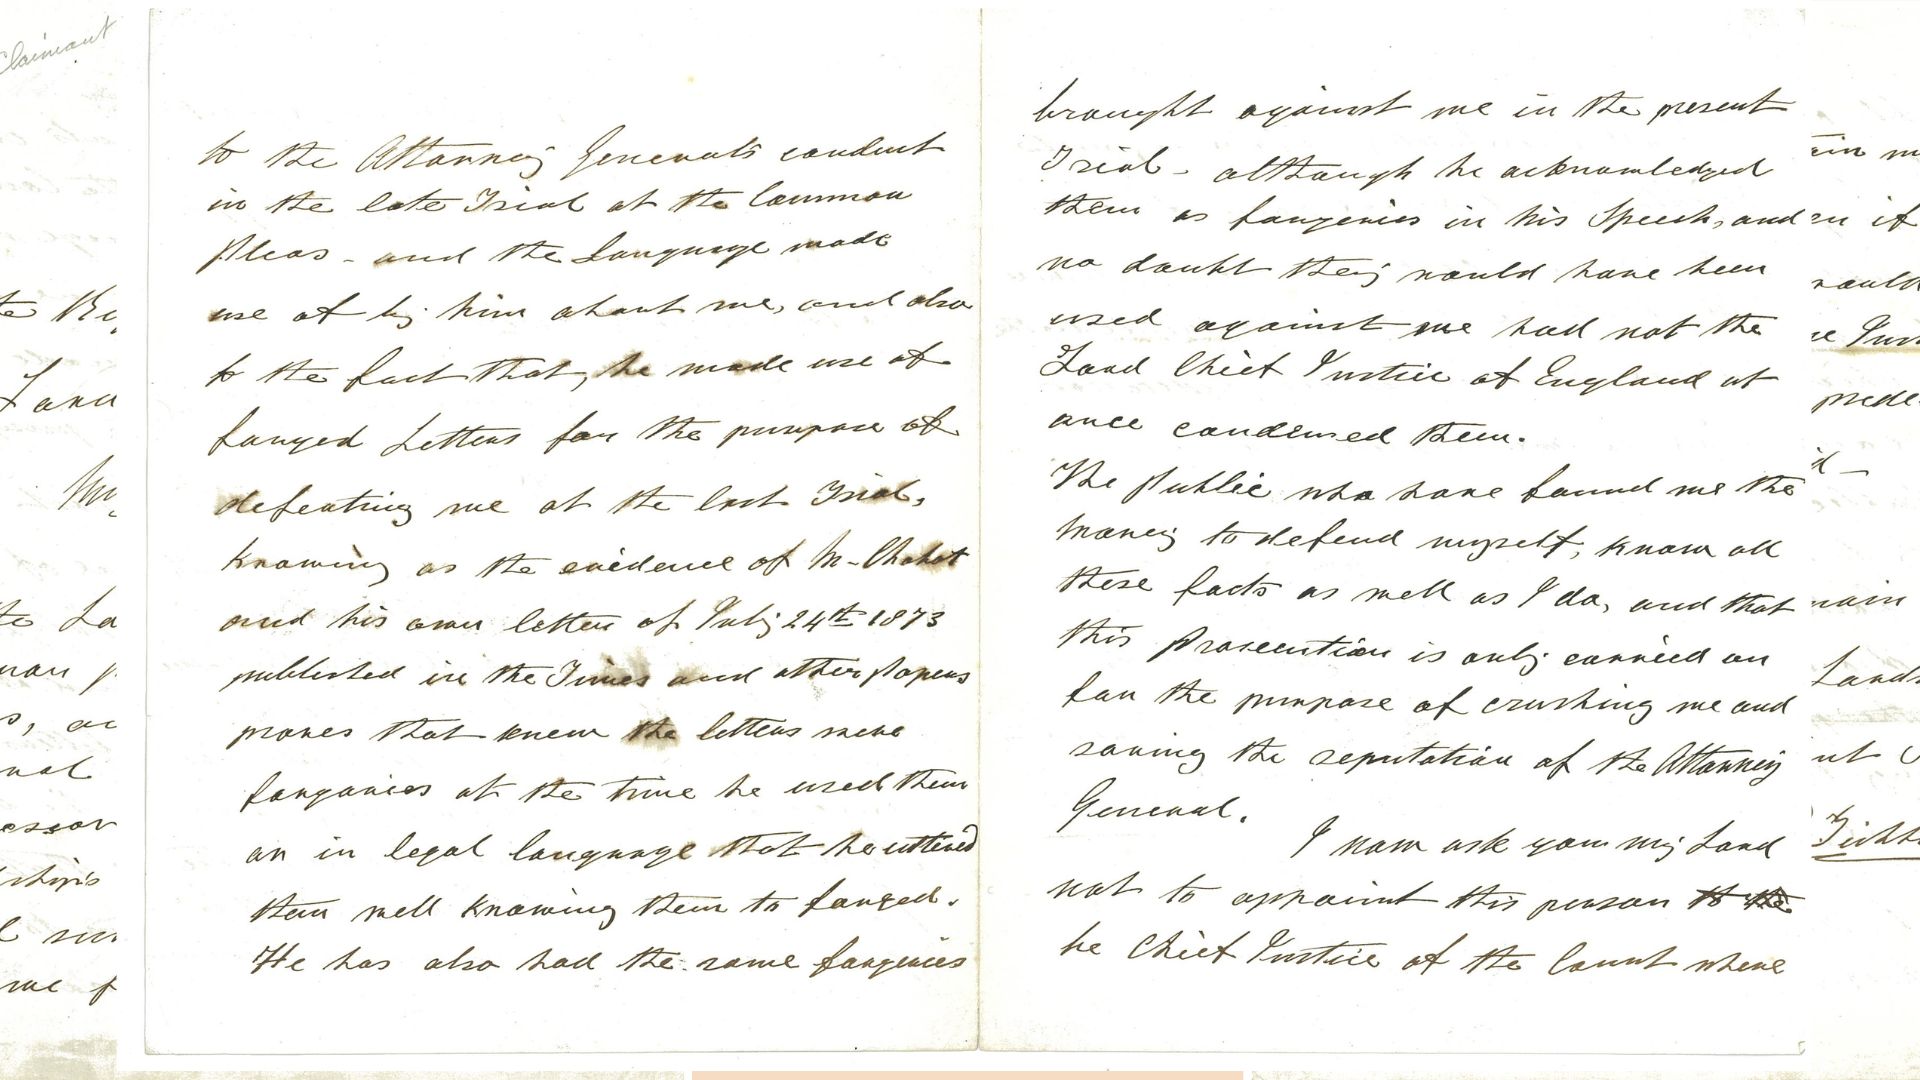 Claimant
to the Attorney General's conduct
in the late Trial at the Common
Pleas - and the Language made
use of by him about me, and also
to the fact that, he made use of
forged Letters for the purpose of
defeating me at the last Trial,
knowing as the evidence of M- Chabot
and his own letter of July 24th 1873
published in the Times and other papers
proves that knew the letters were
forgaries at the time he used them
or in legal language that he uttered
them well knowing them to forged.
He has also had the same forgeries
brought against me in the present
Trial - although he acknowledged
them as forgeries in his Speech, and
no doubt they would have been
used against me had not the
Lord Chief Justice of England at
once condemed them.
The Public who have found me the
money to defend myself, know all
these facts as well as I do, and that
this Prosecution is only carried on
for the purpose of crushing me and
saving the reputation of the Attorney
General.
I now ask you my Lord
not to appoint this person to the
be Chief Justice of the Court where